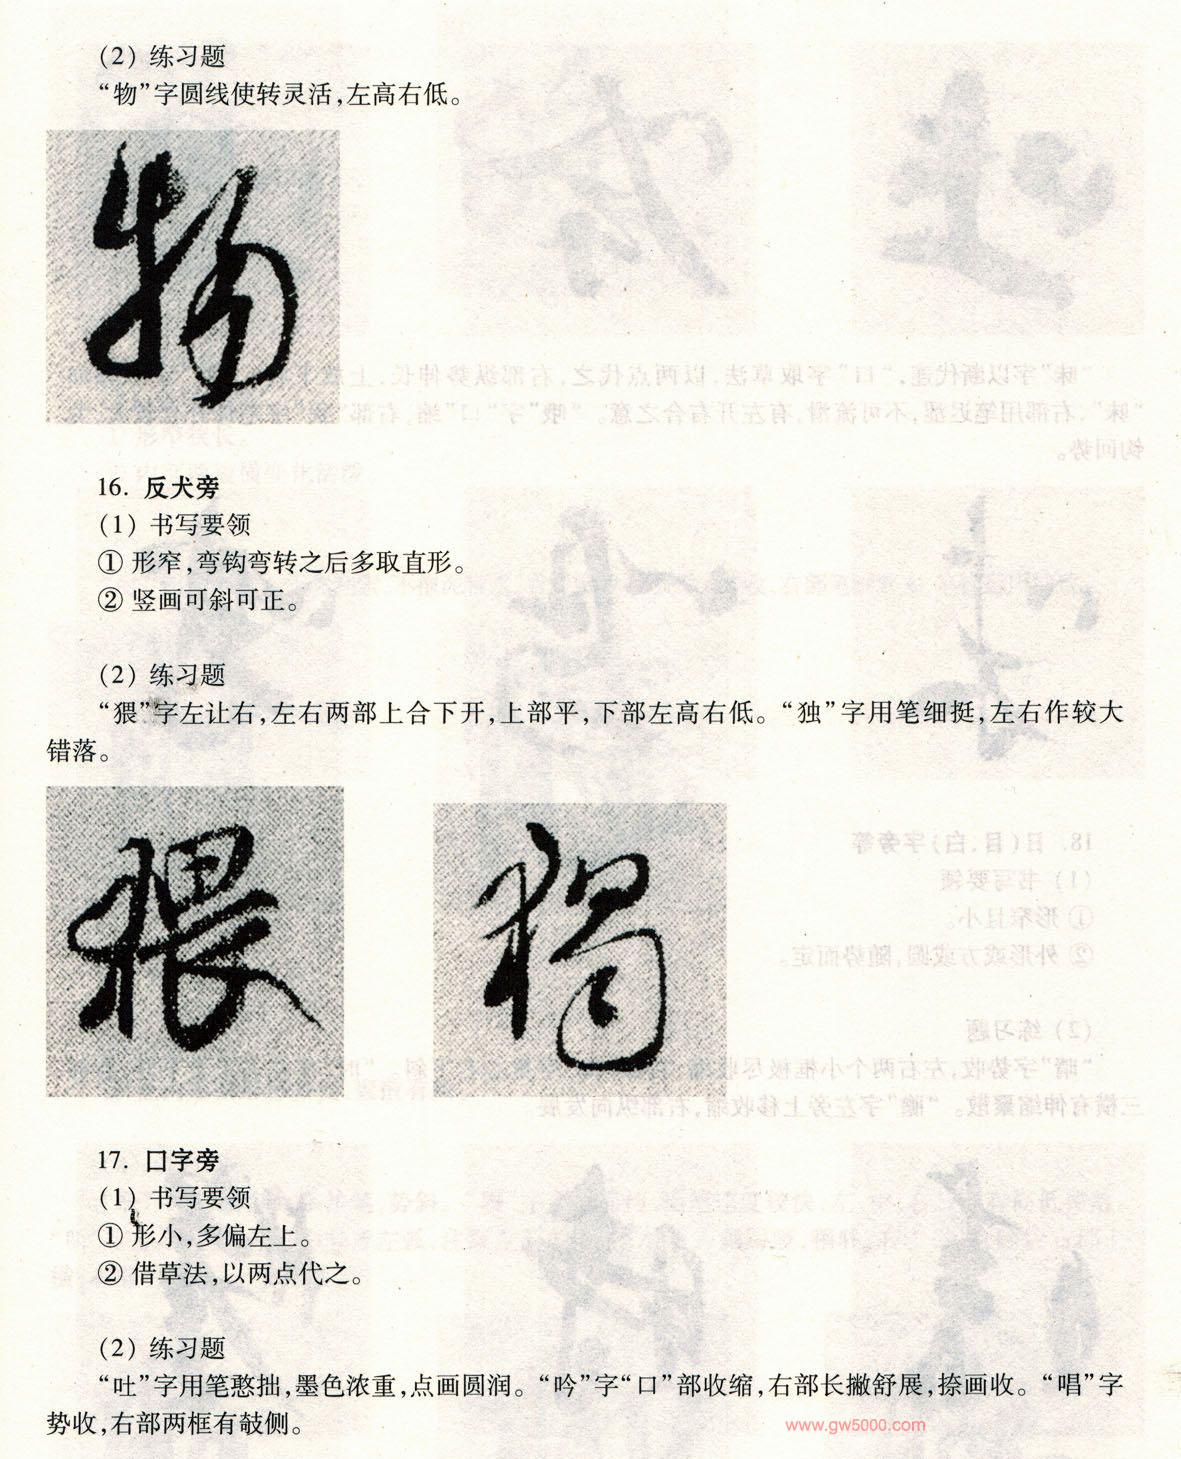 (2) 练习题
“物”字圆线使转灵活,左高右低。
物
16. 反犬旁
(1) 书写要领
① 形窄,弯钩弯转之后多取直形。
② 竖画可斜可正。
(2) 练习题
“猥”字左让右,左右两部上合下开,上部平,下部左高右低。“独”字用笔细挺,左右作较大
错落。
猥 独
17. 口字旁
(1) 书写要领
① 形小,多偏左上。
② 借草法,以两点代之。
(2) 练习题
“吐”字用笔憨拙,墨色浓重,点画圆润。“吟”字“口”部收缩,右部长撇舒展,捺画收。“唱”字
势收,右部两框有敧侧。
www.gw5000.com